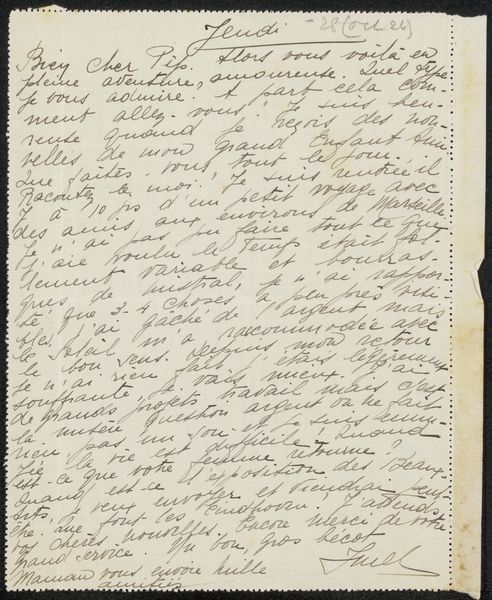 Jeudi - 28 (oct 26)
Bien cher Pip. Alors vous voilà en
pleine aventure, amoureuse. Quel type
je vous admire. A part cela com-
ment allez-vous? Je suis heu-
reuse quand je reçois des nou-
velles de mon grand Enfant
Que faites-vous tout le jour,
Racontez le moi! Je suis rentrée, il
y a 10 jrs d'un petit voyage avec
des amis aux environs de Marseille.
Je n'ai pas pu faire tout ce que
j'aie voulu, le temps était
variable et bouras-
ques de mistral, je n'ai rappor-
té que 3-4 choses à peu près
j'ai gâché de l'argent mais
le soleil m'a raccommodée avec
le bon sens. Depuis mon retour
je n'ai rien fait, étais légèrement
souffrante, je vais mieux. J'ai
de grands projets travail mais c'est
la question argent on ne fait
rien pas un sou et je suis
la vie est difficile. Quand
est-ce que votre femme retourne?
Quand est-ce l'exposition des Beaux-
Arts, je veux envoyer et viendrai peut
être. Que font les Eindhoven. J'attends
vos chères nouvelles. Encore merci de votre
grand service. Un bon, gros bécot
Maman vous envoie mille
amitiés